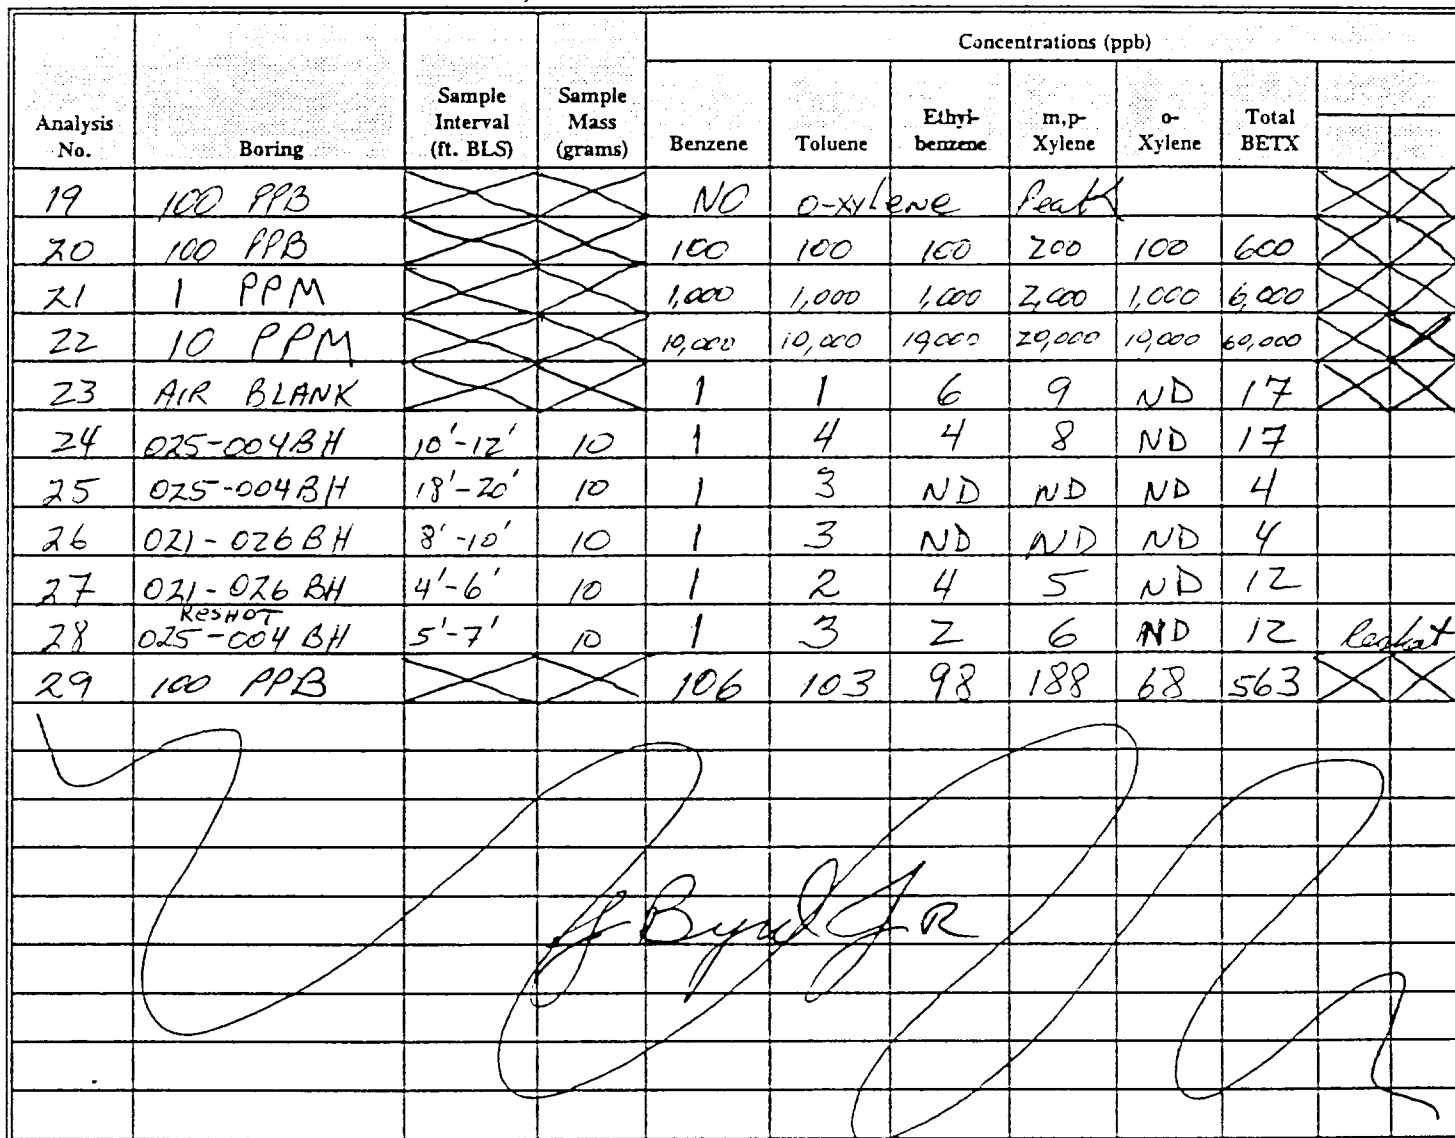 Concentrations (ppb)
Analysis No. Boring Sample Interval (ft. BLS) Sample Mass (grams) Benzene Toluene Ethyl-benzene m,p-Xylene o-Xylene Total BETX
19 100 PPB NO o-xylene Peak
20 100 PPB 100 100 100 200 100 600
21 1 PPM 1,000 1,000 1,000 2,000 1,000 6,000
22 10 PPM 10,000 10,000 10,000 20,000 10,000 60,000
23 AIR BLANK 1 1 6 9 ND 17
24 025-004BH 10'-12' 10 1 4 4 8 ND 17
25 025-004BH 18'-20' 10 1 3 ND ND ND 4
26 021-026BH 8'-10' 10 1 3 ND ND ND 4
27 021-026 BH 4'-6' 10 1 2 4 5 ND 12
RESHOT
28 025-004 BH 5'-7' 10 1 3 2 6 ND 12 Reshot
29 100 PPB 106 103 98 188 68 563
Byrd JR